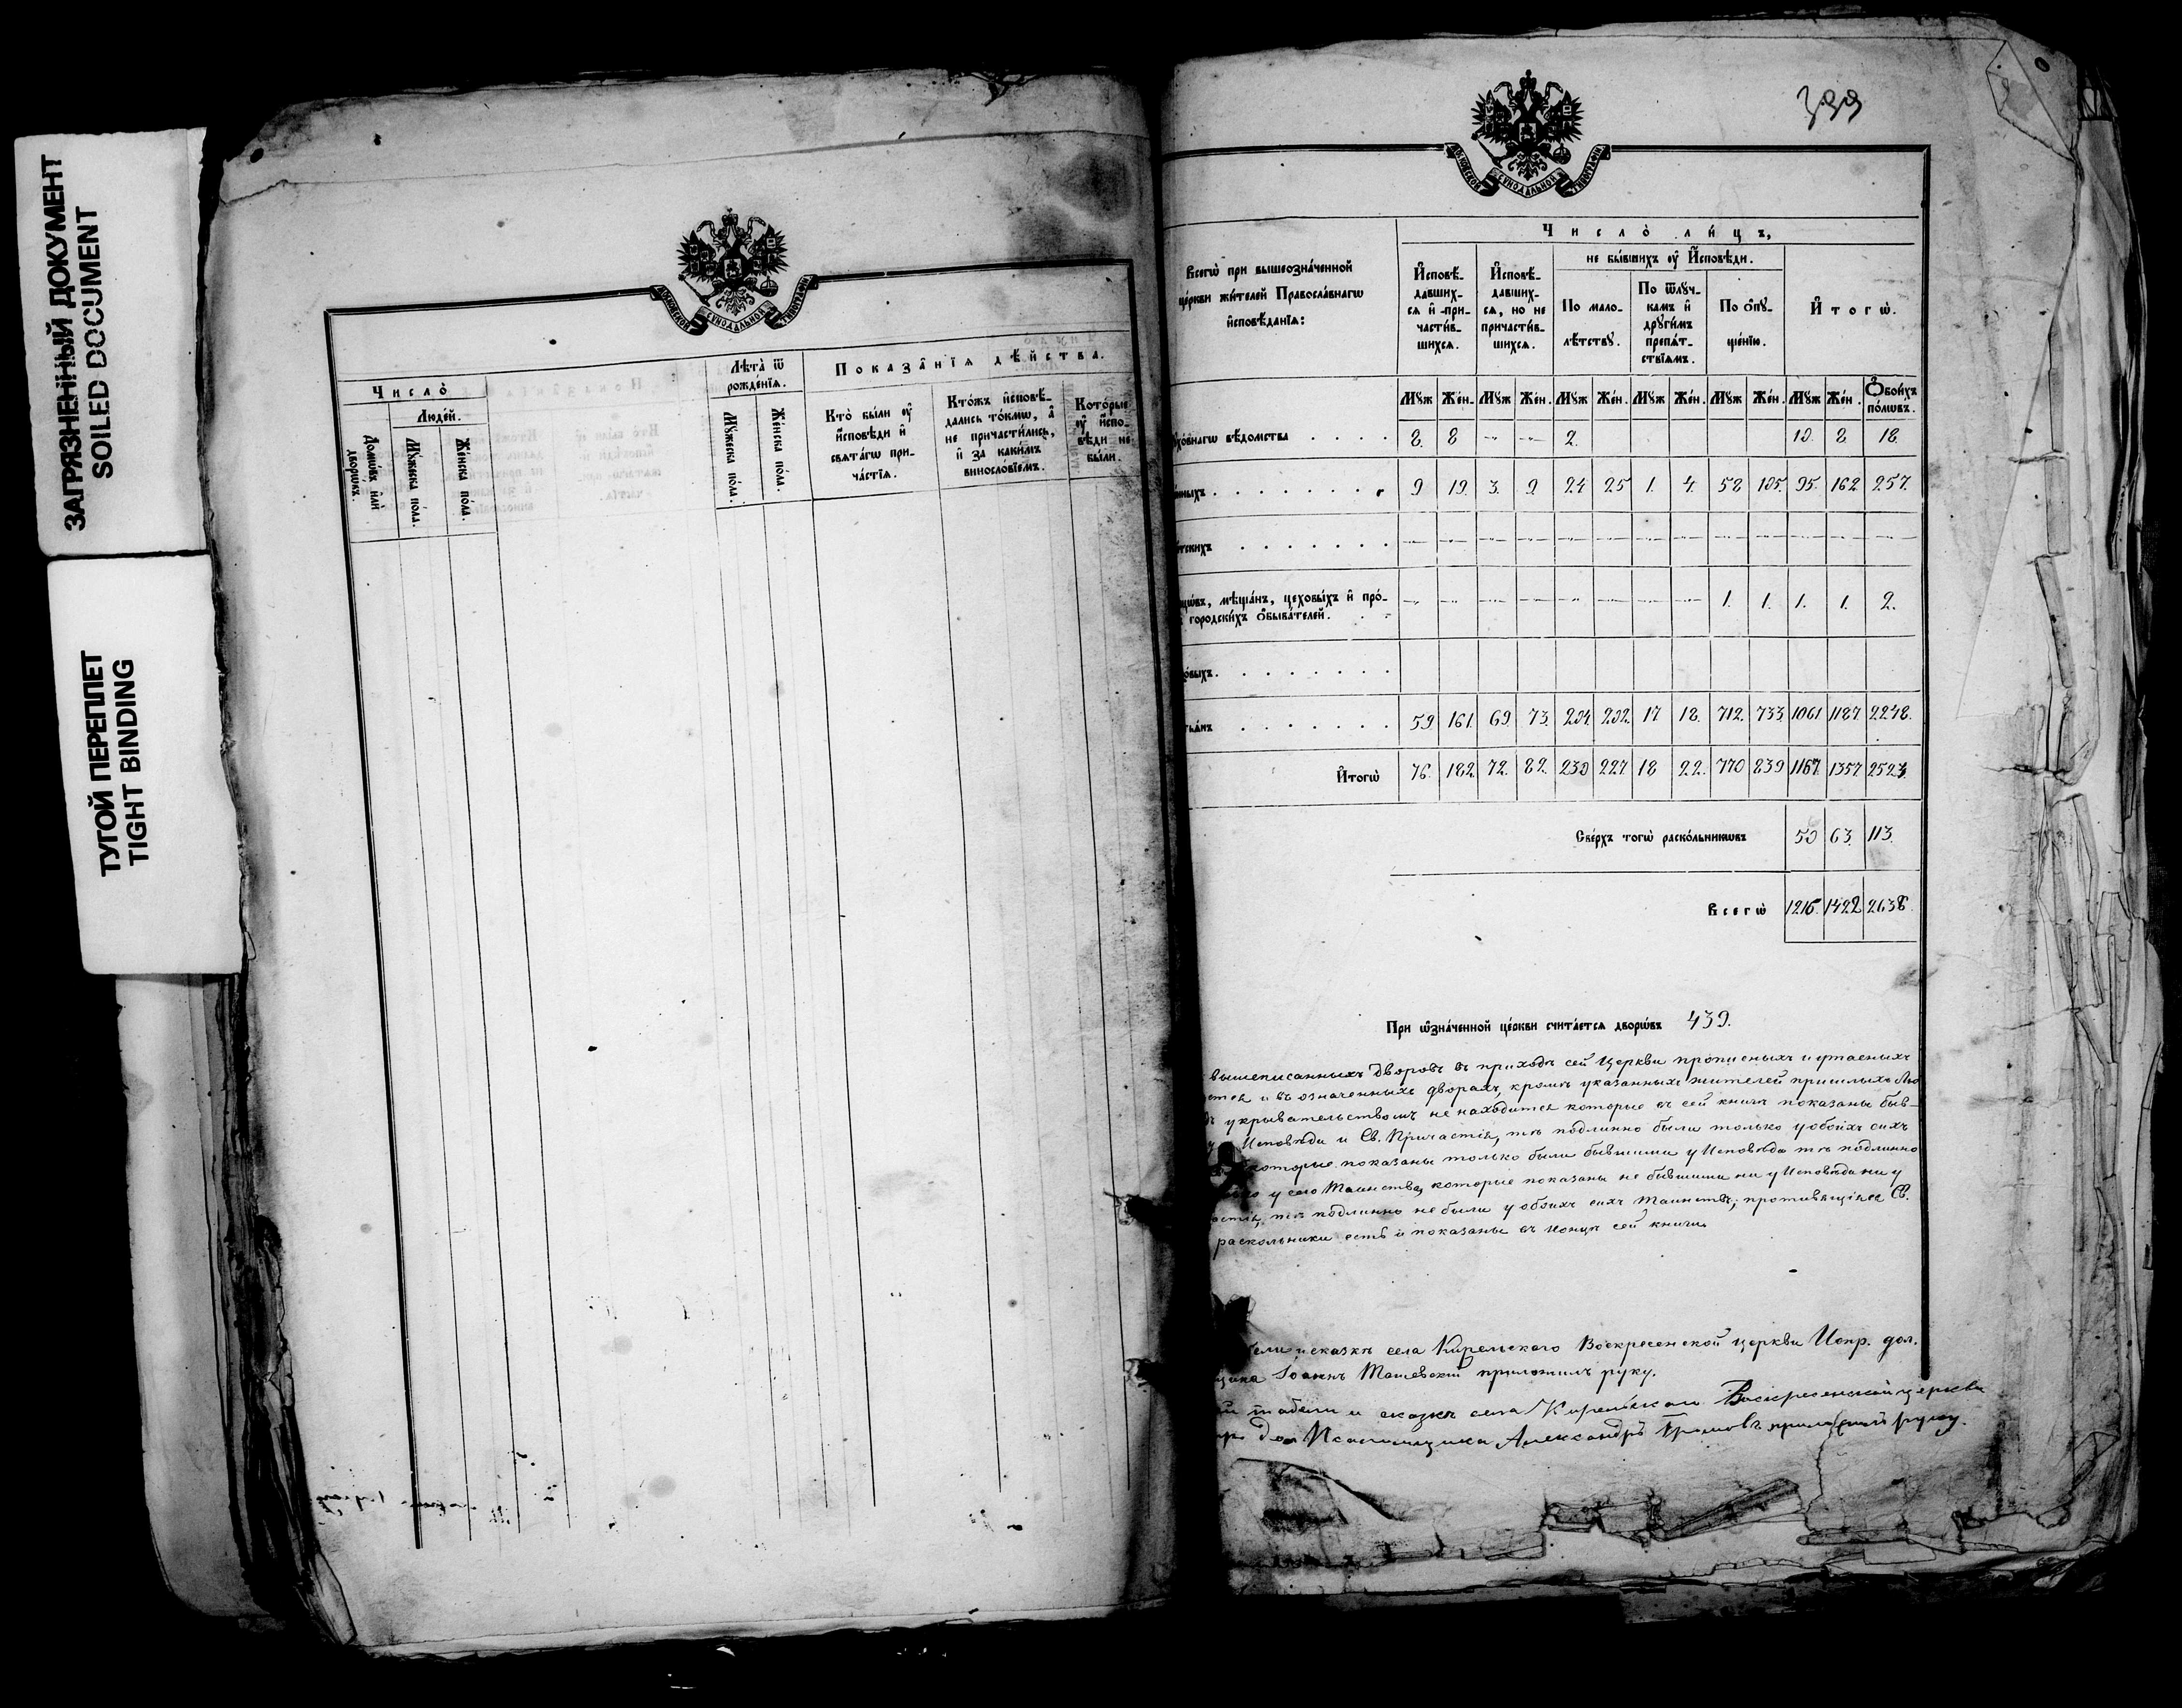 ЗАГРЯЗНЕННЫЙ ДОКУМЕНТ
SOILED DOCUMENT
ТУГОЙ ПЕРЕПЛЕТ
TIGHT BINDING
МОСКОВСКОЙ СѴНОДАЛЬНОЙ ТИПОГРАФІИ
Число̀
Людей.
Домѡвъ и҆лѝ дворѡвъ.
Мꙋжеска пола.
Же́нска пола.
Лѣта̀ ѿ рожде́нїѧ.
Мꙋжеска пола.
Же́нска пола.
Показа̑нїѧ дѣ́йства.
Кто̀ бы́ли оу҆ и҆сповѣди и҆ свѧта́гѡ при-
ча́стїѧ.
Кто́жъ и҆сповѣ́-
дались то́кмѡ, а҆
не причасти́лись,
и҆ за каки́мъ
винослόвїемъ.
Кото́рые
оу҆ и҆спо-
вѣди не
бы́ли.
399
МОСКОВСКОЙ СѴНОДАЛЬНОЙ ТИПОГРАФІИ
Всегѡ̀ при вышеозна́ченной
це́ркви жи́телей Правосла́внагѡ
и҆сповѣ́данїѧ:
Число̀ ли́цъ,
И҆сповѣ́-
давших-
сѧ и҆ при-
части́в-
шихсѧ.
И҆сповѣ́-
давших-
сѧ, но не
причасти́в-
шихсѧ.
не бы́вшихъ оу҆ И҆сповѣди.
По мало-
лѣ́тствꙋ.
По ѿлꙋч-
камъ и҆
дрꙋги̑мъ
препѧ́т-
ствїѧмъ.
По ѻ҆пꙋ-
ще́нїю.
И҆тогѡ̀.
Мꙋж Же́н. Мꙋж Же́н. Мꙋж Же́н. Мꙋж Же́н. Мꙋж Же́н. Мꙋж Же́н. Ѻ҆бои́хъ
по́лѡвъ.
ꙋхо́внагѡ вѣ́домства 8. 8 -„- -„- 2. 10. 8. 18.
нныхъ 9 19. 3. 9 24 25 1. 4. 58 105. 95. 162 257.
тскихъ
щѡвъ, мѣща́нъ, цехόвыхъ и҆ про́-
городски́хъ ѻ҆быва́телей. 1. 1. 1. 1. 2.
о́выхъ.
тьѧнъ 59 161 69 73. 204. 202. 17 18. 712. 733 1061 1187. 2248.
И҆тогѡ̀ 76. 182. 72. 82. 230 227 18 22. 770 839 1167. 1357 2523.
Све́рхъ тогѡ̀ раско́льникѡвъ 50 63. 113.
Всегѡ̀ 1216. 1422 2638.
При ѡ҆зна́ченной це́ркви счита́етсѧ дворѡ́въ 439.
вышеписанныхъ дворовъ въ приходѣ сей Церкви прописныхъ и утаенныхъ
ется и въ означенныхъ дворахъ, кромѣ указанныхъ жителей пришлыхъ лю
укрывательствомъ не находится которые въ сей книгѣ показаны быв-
Исповѣди и Св. Причастія, тѣ подлинно были только у обоихъ сихъ
которые показаны только были бывшими у Исповѣди тѣ подлинно
у сего Таинства, которые показаны не бывшими ни у Исповѣди ни у
астія, тѣ подлинно не были у обоихъ сихъ таинствъ; противящіеся Св.
раскольники есть и показаны въ концѣ сей книги.
сказкѣ села Кирельскаго Воскресенской церкви Испр. дол.
щика Іоаннъ Ташевскій приложилъ руку.
табели и сказкѣ села Кирельскаго Воскресенской церкви
дол Псаломщика Александръ Громовъ приложилъ руку.